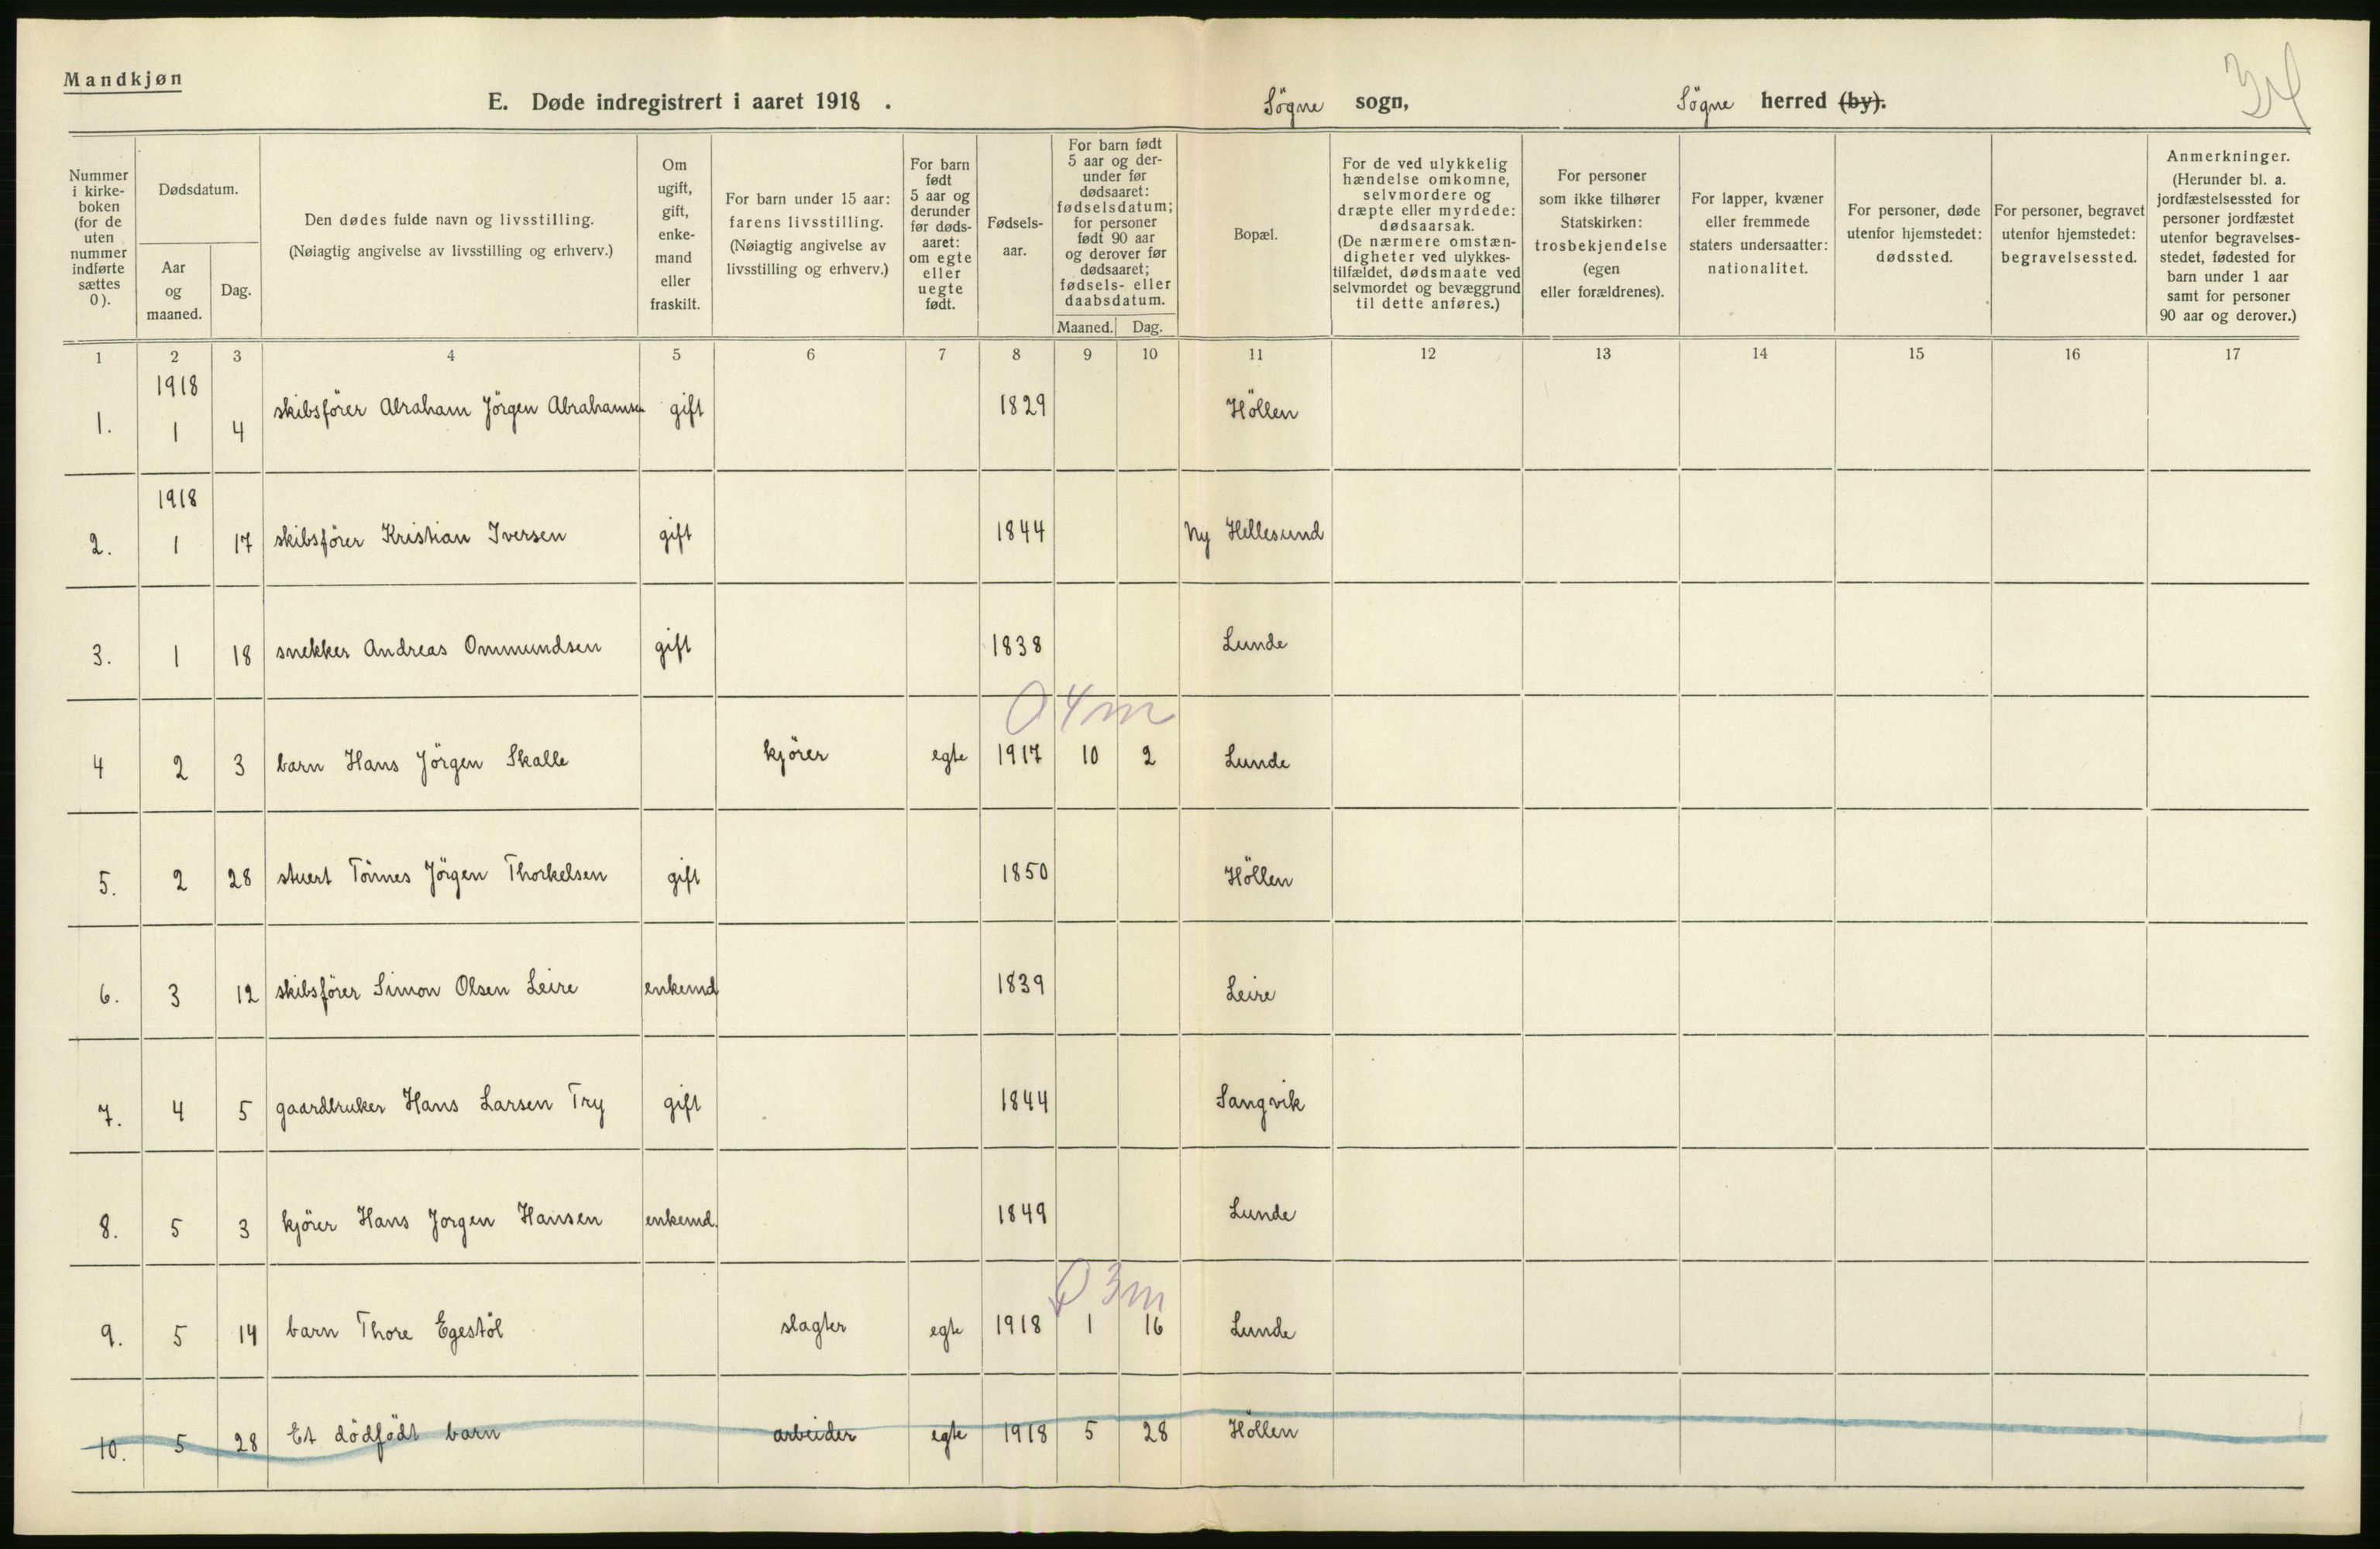 Mandkjøn
34
E. Døde indregistrert i aaret 1918 . Sögne sogn, Sögne herred (by).
Nummer i kirke-boken (for de uten nummer indførte sættes 0).
Dødsdatum.
Aar og maaned.
Dag.
Den dødes fulde navn og livsstilling.
(Nøiagtig angivelse av livsstilling og erhverv.)
Om ugift, gift, enke-mand eller fraskilt.
For barn under 15 aar: farens livsstilling.
(Nøiagtig angivelse av livsstilling og erhverv.)
For barn født 5 aar og derunder før døds-aaret: om egte eller uegte født.
Fødsels-aar.
For barn født 5 aar og der-under før dødsaaret: fødselsdatum; for personer født 90 aar og derover før dødsaaret; fødsels- eller daabsdatum.
Maaned. Dag.
Bopæl.
For de ved ulykkelig hændelse omkomne, selvmordere og dræpte eller myrdede: dødsaarsak.
(De nærmere omstæn-digheter ved ulykkes-tilfældet, dødsmaate ved selvmordet og bevæggrund til dette anføres.)
For personer som ikke tilhører Statskirken: trosbekjendelse (egen eller forældrenes).
For lapper, kvæner eller fremmede staters undersaatter: nationalitet.
For personer, døde utenfor hjemstedet: dødssted.
For personer, begravet utenfor hjemstedet: begravelsessted.
Anmerkninger.
(Herunder bl. a. jordfæstelsessted for personer jordfæstet utenfor begravelses-stedet, fødested for barn under 1 aar samt for personer 90 aar og derover.)
1 2 3 4 5 6 7 8 9 10 11 12 13 14 15 16 17
1918
1. 1 4 skibsförer Abraham Jörgen Abrahamsen gift 1829 Höllen
1918
2. 1 17 skibsförer Kristian Iversen gift 1844 Ny Hellesund
3. 1 18 snekker Andreas Ommundsen gift 1838 Lunde
0 4 m
4 2 3 barn Hans Jörgen Skalle kjörer egte 1917 10 2 Lunde
5. 2 28 stuert Tönnes Jörgen Thorkelsen gift 1850 Höllen
6. 3 12 skibsförer Simon Olsen Leire enkemd 1839 Leire
7. 4 5 gaardbruker Hans Larsen Try gift 1844 Langvik
8. 5 3 kjörer Hans Jorgen Hansen enkemd. 1849 Lunde
0 3 m
9. 5 14 barn Thore Egestöl slagter egte 1918 1 16 Lunde
10. 5 28 Et dödfödt barn arbeider egte 1918 5 28 Höllen